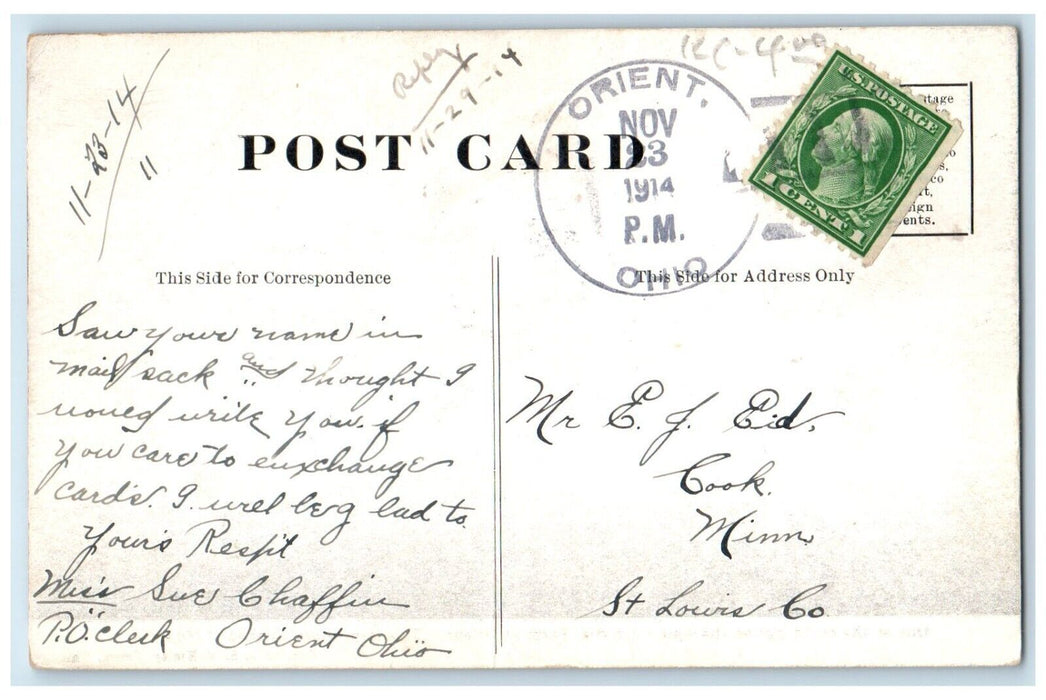 11-23-14
11
Reply
11-29-14
POST CARD
ORIENT,
NOV
23
1914
P.M.
OHIO
U.S. POSTAGE
1 CENT 1
This Side for Correspondence
This Side for Address Only
Saw your name in
mail sack and thought I
woued write you. if
you care to enxchange
cards. I. will be g lad to.
Yours Resp't
Miss Sue Chaffin
P.O. clerk Orient Ohio
Mr E. J. Eid,
Cook.
Minn
St Lowis Co.